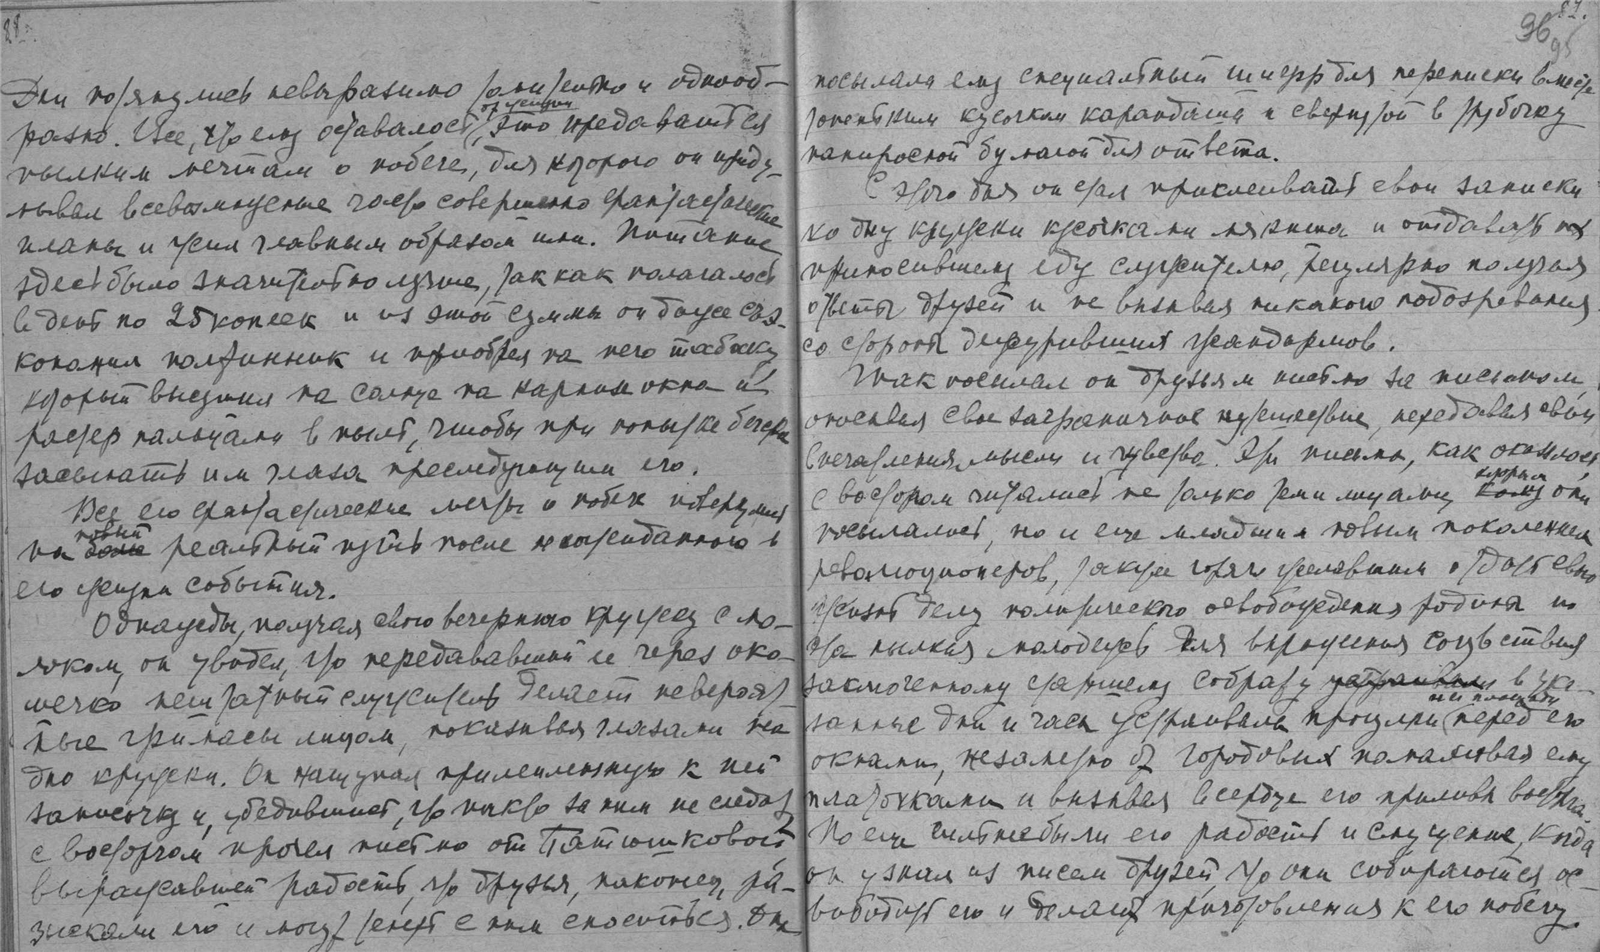 28.
Дни потянулись невыразимо томительно и однооб-
разно. Все, что ему оставалось от жизни, это предаваться
пылким мечтам о побеге, для которого он приду-
мывал всевозможные часто совершенно фантастические
планы и жил главным образом ими. Питание
здесь было значительно лучше, так как полагалось
в день по 25 копеек и из этой суммы он даже сэ-
кономил полтинник и приобрел на него табаку
который высушил на солнце на карнизе окна и
растер пальцами в пыль, чтобы при попытке бегства
засыпать им глаза преследующим его.
Все его фантастические мечты о побеге повернулись
на новый реальный путь после неожиданного в
его жизни события.
Однажды, получая свою вечернюю кружку с мо-
локом, он увидел, что передававший ее через око-
шечко нештатный служитель делает невероят-
ные гримасы лицом, показывая глазами на
дно кружки. Он нащупал прилепленную к ней
записочку и, убедившись, что никто за ним не следит
с восторгом прочел письмо от Батюшковой
выражавшей радость, что друзья, наконец, ра-
зыскали его и могут теперь с ним сноситься. Она
96
95
посылала ему специальный шифр для переписки вместе
с маленьким кусочком карандаша и свернутой в трубочку
папиросной бумагой для ответа.
С этого дня он стал приклеивать свои записки
ко дну кружки кусочками мякиша и отдавать их
приносившему еду служителю, регулярно получая
ответы друзей и не вызывая никакого подозревания
со стороны дежуривших жандармов.
Так посылал он друзьям письмо за письмом,
описывая свое заграничное путешествие, передавая свои
впечатления, мысли и чувства. Эти письма, как оказалось
с восторгом читались не только теми лицами, которым они
посылались, но и еще младшим новым поколением
революционеров, также горячо желавшим отдать свою
жизнь делу политического освобождения родины и
эта пылкая молодежь для выражения сочувствия
заключенному старшему собрату в ука-
занные дни и часы устраивали прогулки по площади перед его
окнами, незаметно от городовых помахивая ему
платочками и вызывая в сердце его приливы восторга.
Но еще сильнее были его радость и смущение, когда
он узнал из писем друзей, что они собираются ос-
вободить его и делают приготовления к его побегу.